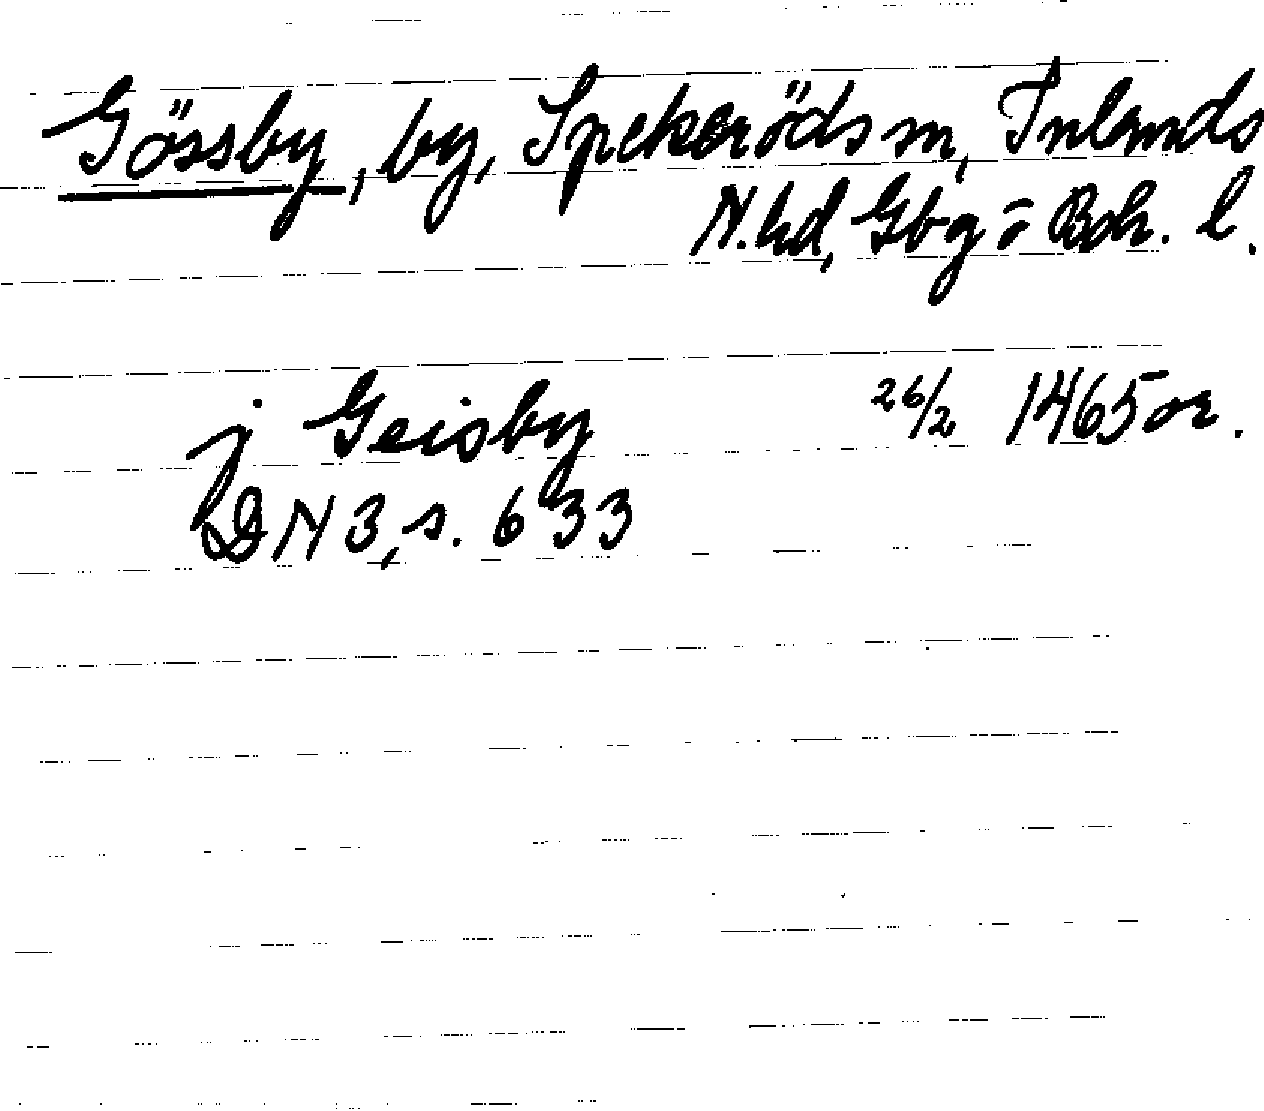 Gössby, by, Spekeröds sn, Inlands
N. hd, Gbg o Boh. l.
j Geisby 26/2 1465 or.
DN 3, s. 633